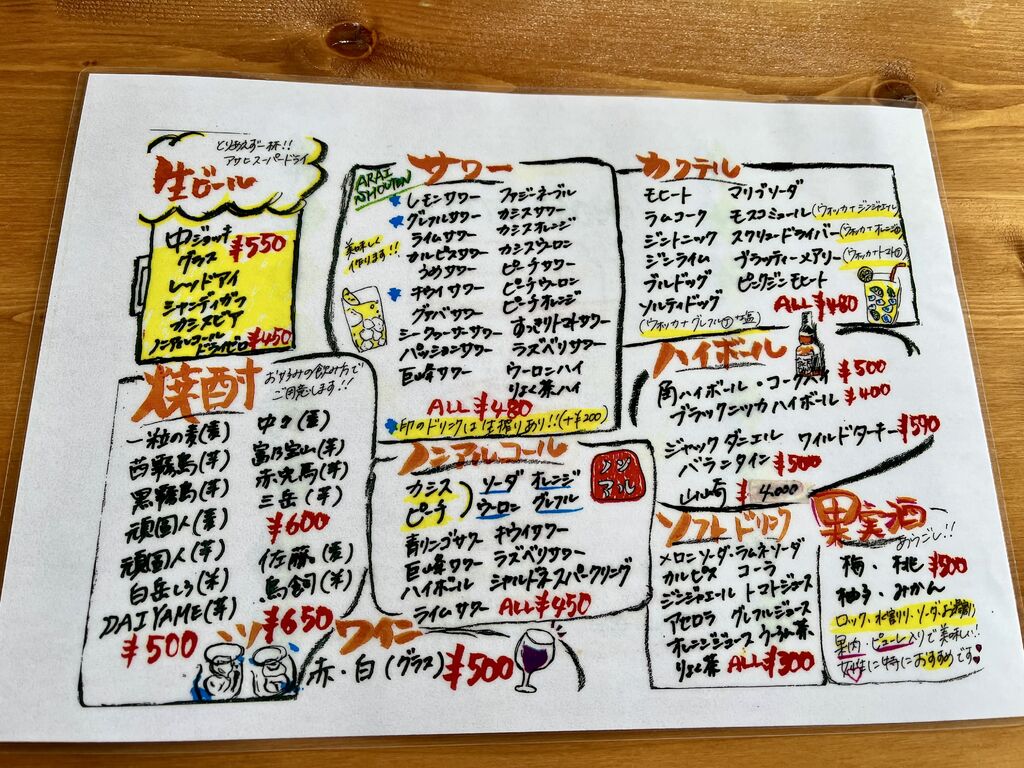 とりあえず一杯!!
アサヒスーパードライ
生ビール
中ジョッキ
¥550
グラス
レッドアイ
シャンディガフ
カシスビア
ノンアルコール
ドライゼロ
¥450
サワー
ARAI
SHOUTEN
美味しく
作ります!!
レモンサワー
グレフルサワー
ライムサワー
カルピスサワー
うめサワー
キウイサワー
グァバサワー
シークァーサーサワー
パッションサワー
巨峰サワー
ファジーネーブル
カシスサワー
カシスオレンジ
カシスウーロン
ピーチサワー
ピーチウーロン
ピーチオレンジ
すっきりトマトサワー
ラズベリサワー
ウーロンハイ
りょく茶ハイ
ALL ¥480
印のドリンクは生搾りあり!!(+¥200)
カクテル
モヒート
ラムコーク
ジントニック
ジンライム
ブルドッグ
ソルティドッグ
(ウォッカ+グレフル+塩)
マリブソーダ
モスコミュール(ウォッカ+ジンジャエール)
スクリュードライバー(ウォッカ+オレンジ)
ブラッディーメアリー(ウォッカ+トマト)
ピンクジンモヒート
ALL ¥480
ハイボール
角ハイボール・コークハイ ¥500
ブラックニッカハイボール ¥400
ジャックダニエル ワイルドターキー ¥590
バランタイン ¥500
山崎 ¥ 4,000
焼酎
お好みの飲み方で
ご用意します!!
一粒の麦(麦)
茜霧島(芋)
黒霧島(芋)
頑固人(麦)
頑固人(芋)
白岳しろ(米)
DAIYAME(芋)
¥500
中々(麦)
富乃宝山(芋)
赤兎馬(芋)
三岳(芋)
¥600
佐藤(麦)
鳥飼(米)
¥650
ノンアルコール
ノン
アル
カシス
ピーチ
ソーダ オレンジ
ウーロン グレフル
青リンゴサワー キウイサワー
巨峰サワー ラズベリサワー
ハイボール シャルドネスパークリング
ライムサワー ALL ¥450
ワイン
赤・白(グラス) ¥500
ソフトドリンク
メロンソーダ・ラムネソーダ
カルピス コーラ
ジンジャエール トマトジュース
アセロラ グレフルジュース
オレンジジュース ウーロン茶
りょく茶 ALL ¥300
果実酒
あらごし!!
梅・桃 ¥500
柚子・みかん
ロック・水割り・ソーダ・お湯割り
果肉・ピューレ入りで美味しい!!
女性に特におすすめです